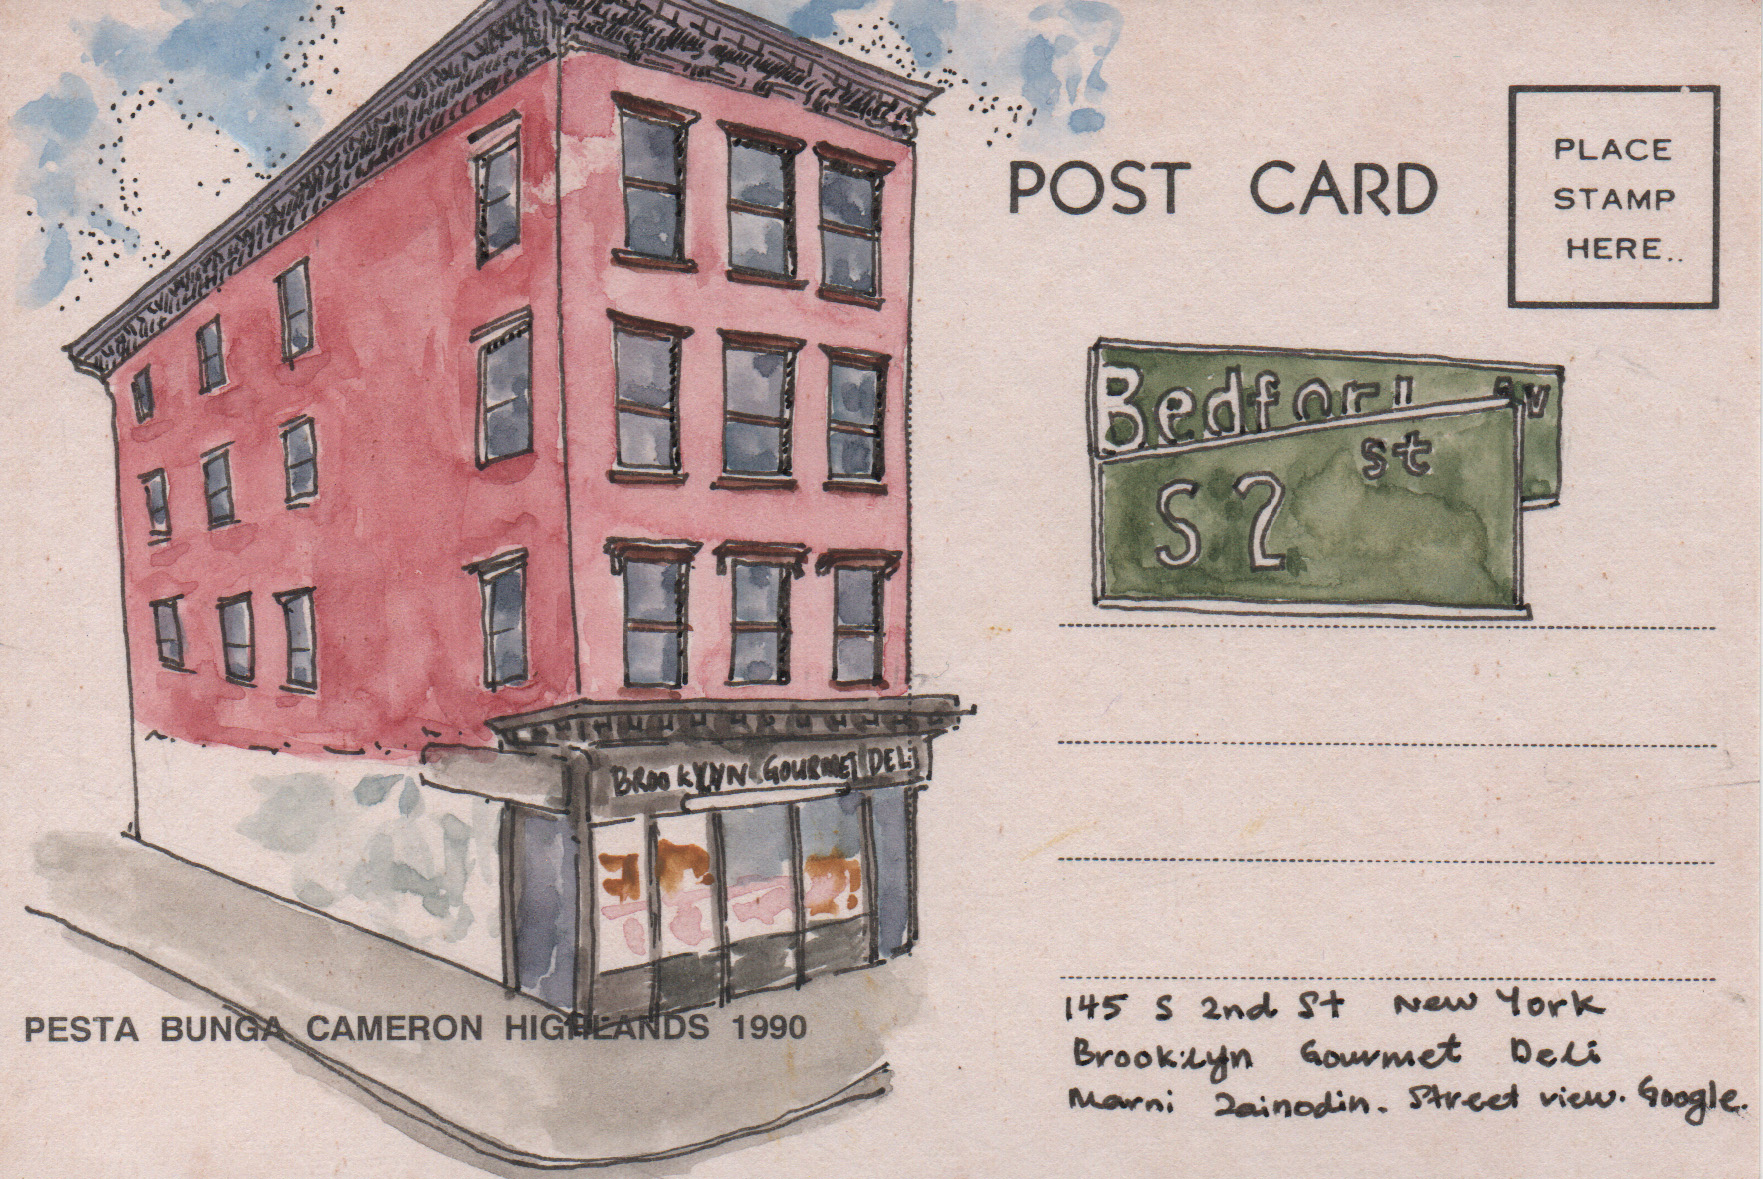 POST CARD
PLACE
STAMP
HERE..
Bedford Av
S 2 st
BROOKLYNN GOURMET DELi
PESTA BUNGA CAMERON HIGHLANDS 1990
145 S 2nd St New York
Brooklyn Gourmet Deli
Marni Zainodin. Street view. Google.